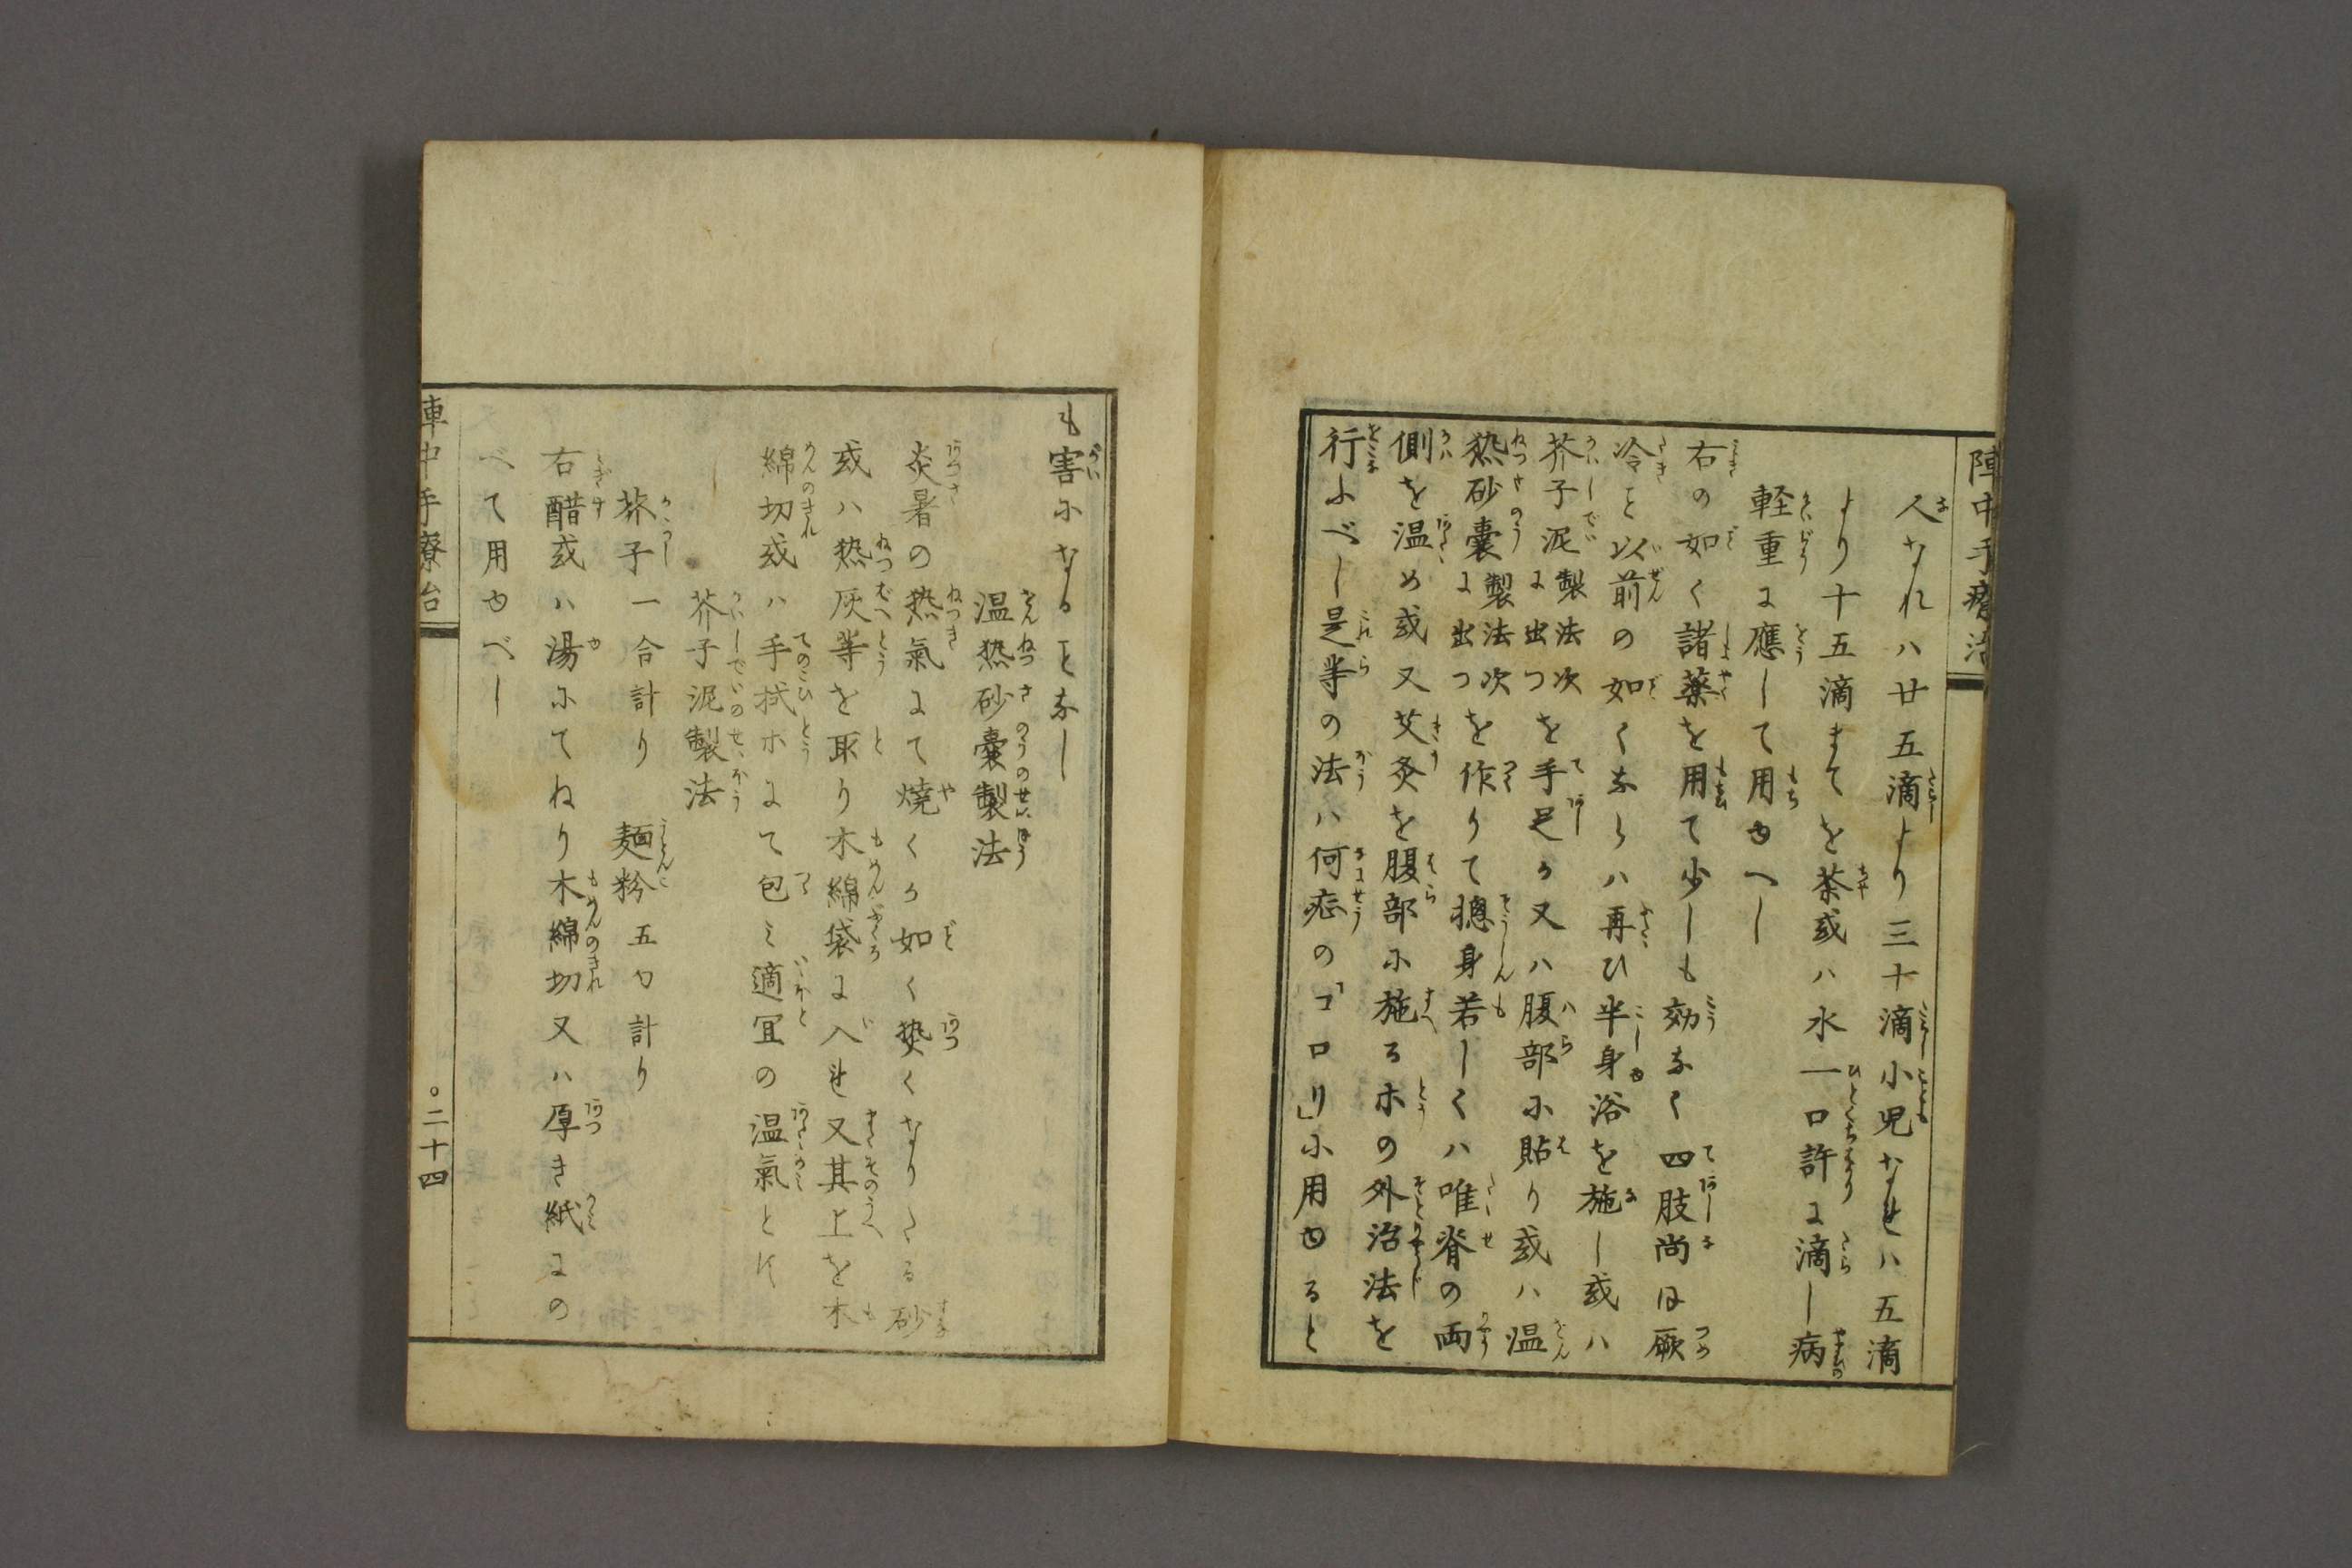 陣中手療治
人なれハ廿五滴より三十滴小児なれハ五滴
より十五滴まてを茶或ハ水一口許に滴し病
軽重に應して用ゆへし
右の如く諸薬を用て少しも効なく四肢尚ほ厥
冷と以前の如くならハ再ひ半身浴を施し或ハ
芥子泥製法次に出つを手足か又ハ腹部に貼り或ハ温
熱砂嚢製法次に出つを作りて摠身若しくハ唯脊の両
側を温め或又艾灸を腹部に施るホの外治法を
行ふべし是等の法ハ何症の「コロリ」に用ゆると
も害になることなし
温熱砂嚢製法
炎暑の熱氣にて焼くか如く熱くなりたる砂
或ハ热灰等を取り木綿袋に入れ又其上を木
綿切或ハ手拭ホにて包ミ適宜の温氣と
芥子泥製法
芥子一合計り 麺粉五勺計り
右醋或ハ湯にてねり木綿切又ハ厚き紙にの
べて用ゆべし
陣中手療治
○二十四